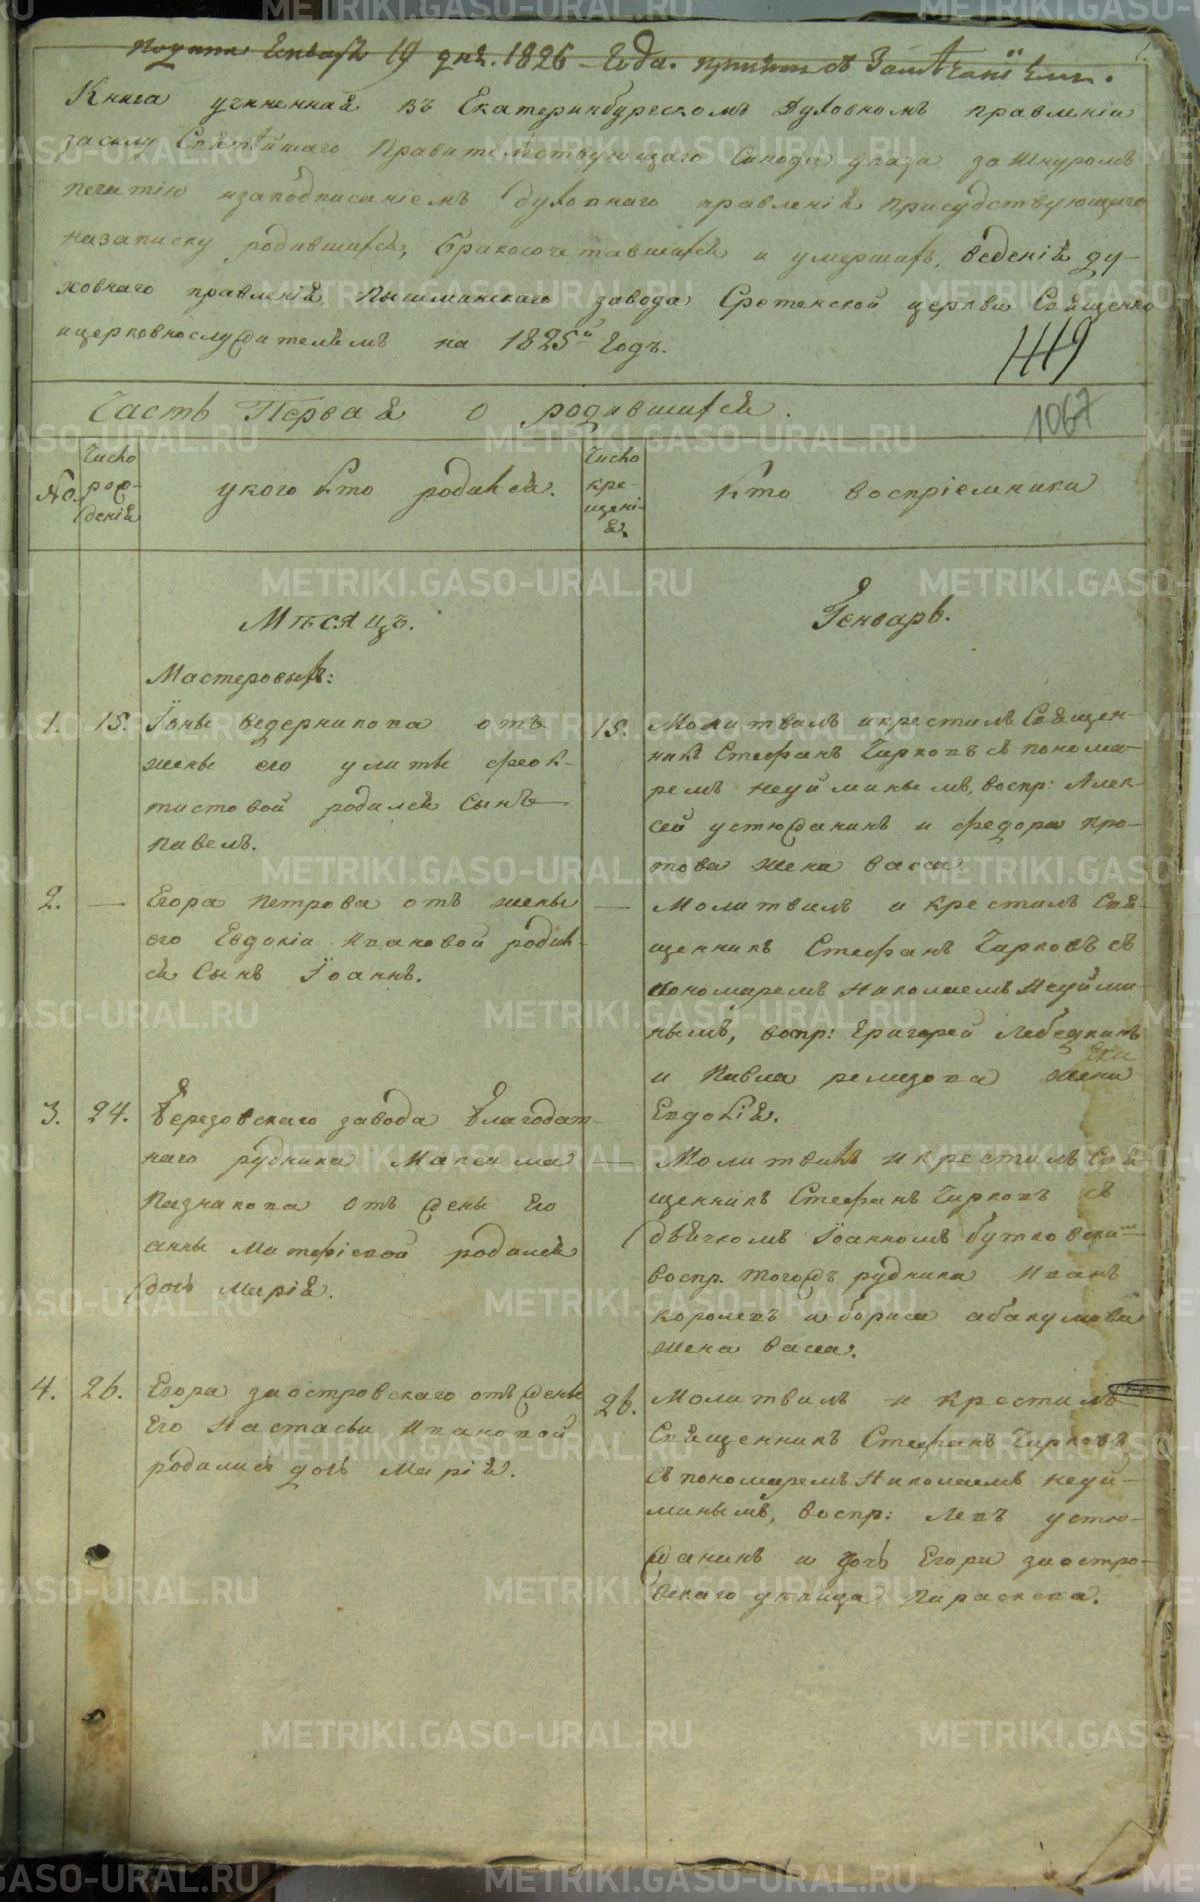 Подана Генваря 19 дня. 1826 Года.
Книга учиненная въ Екатеринбурскомъ Духовномъ правленіи
засилу Святѣйшаго Правительствующаго Синода указа за шнуромъ
печатію изаподписаніемъ духовнаго правленія присудствующаго
назаписку родившихся, бракосочетавшихся и умершихъ, веденія ду-
ховнаго правленія Пышминскаго завода Сретенской церкви Священно
ицерковнослужителямъ на 1825й Годъ.
449
Часть Первая о родившихся.
1067
No.
Число рож-дения
укого кто родился.
Число кре-щені-я.
Кто воспріемники
Мѣсяцъ.
Генварь.
Мастеровыхъ:
1. 15. Іоны ведерникова отъ
жены его улиты феок-
тистовой родился сынъ
павелъ.
15. Молитвилъ икрестилъ Священ-
никъ Стефанъ Чирковъ съ понома-
ремъ неуйминымъ, воспр: Алек-
сей устюжанинъ и федора про-
това жена васса
2. — Егора петрова отъ жены
его Евдокіи Ивановой родил-
ся Сынъ Іоаннъ.
— Молитвилъ и крестилъ Свя-
щенникъ Стефанъ Чирковъ съ
пономаремъ Николаемъ Неуйми-
нымъ, вопр: Григорей Лебедкинъ
и Павла ремизова жена
Евдокія.
3. 24. Березовскаго завода благодат-
наго рудника Максима
Казнакова отъ жены Его
анны Матфіевой родилась
дочь Марія.
— Молитвилъ и крестилъ Свя
щенникъ Стефанъ Чирковъ съ
дьячкомъ Іоанномъ бутковски
воспр. тогожъ рудника Иванъ
королевъ и бориса абакумова
жена васса.
4. 26. Егора заостровскаго отъ жены
Его Настасьи Ивановой
родилась дочь Марія.
26. Молитвилъ и крестилъ
Священникъ Стефанъ Чирковъ
съ пономаремъ Николаемъ неуй-
минымъ, воспр: Левъ устю-
жанинъ и дочь Егора заостро-
вскаго дѣвица Параскева.
METRIKI.GASO-URAL.RU